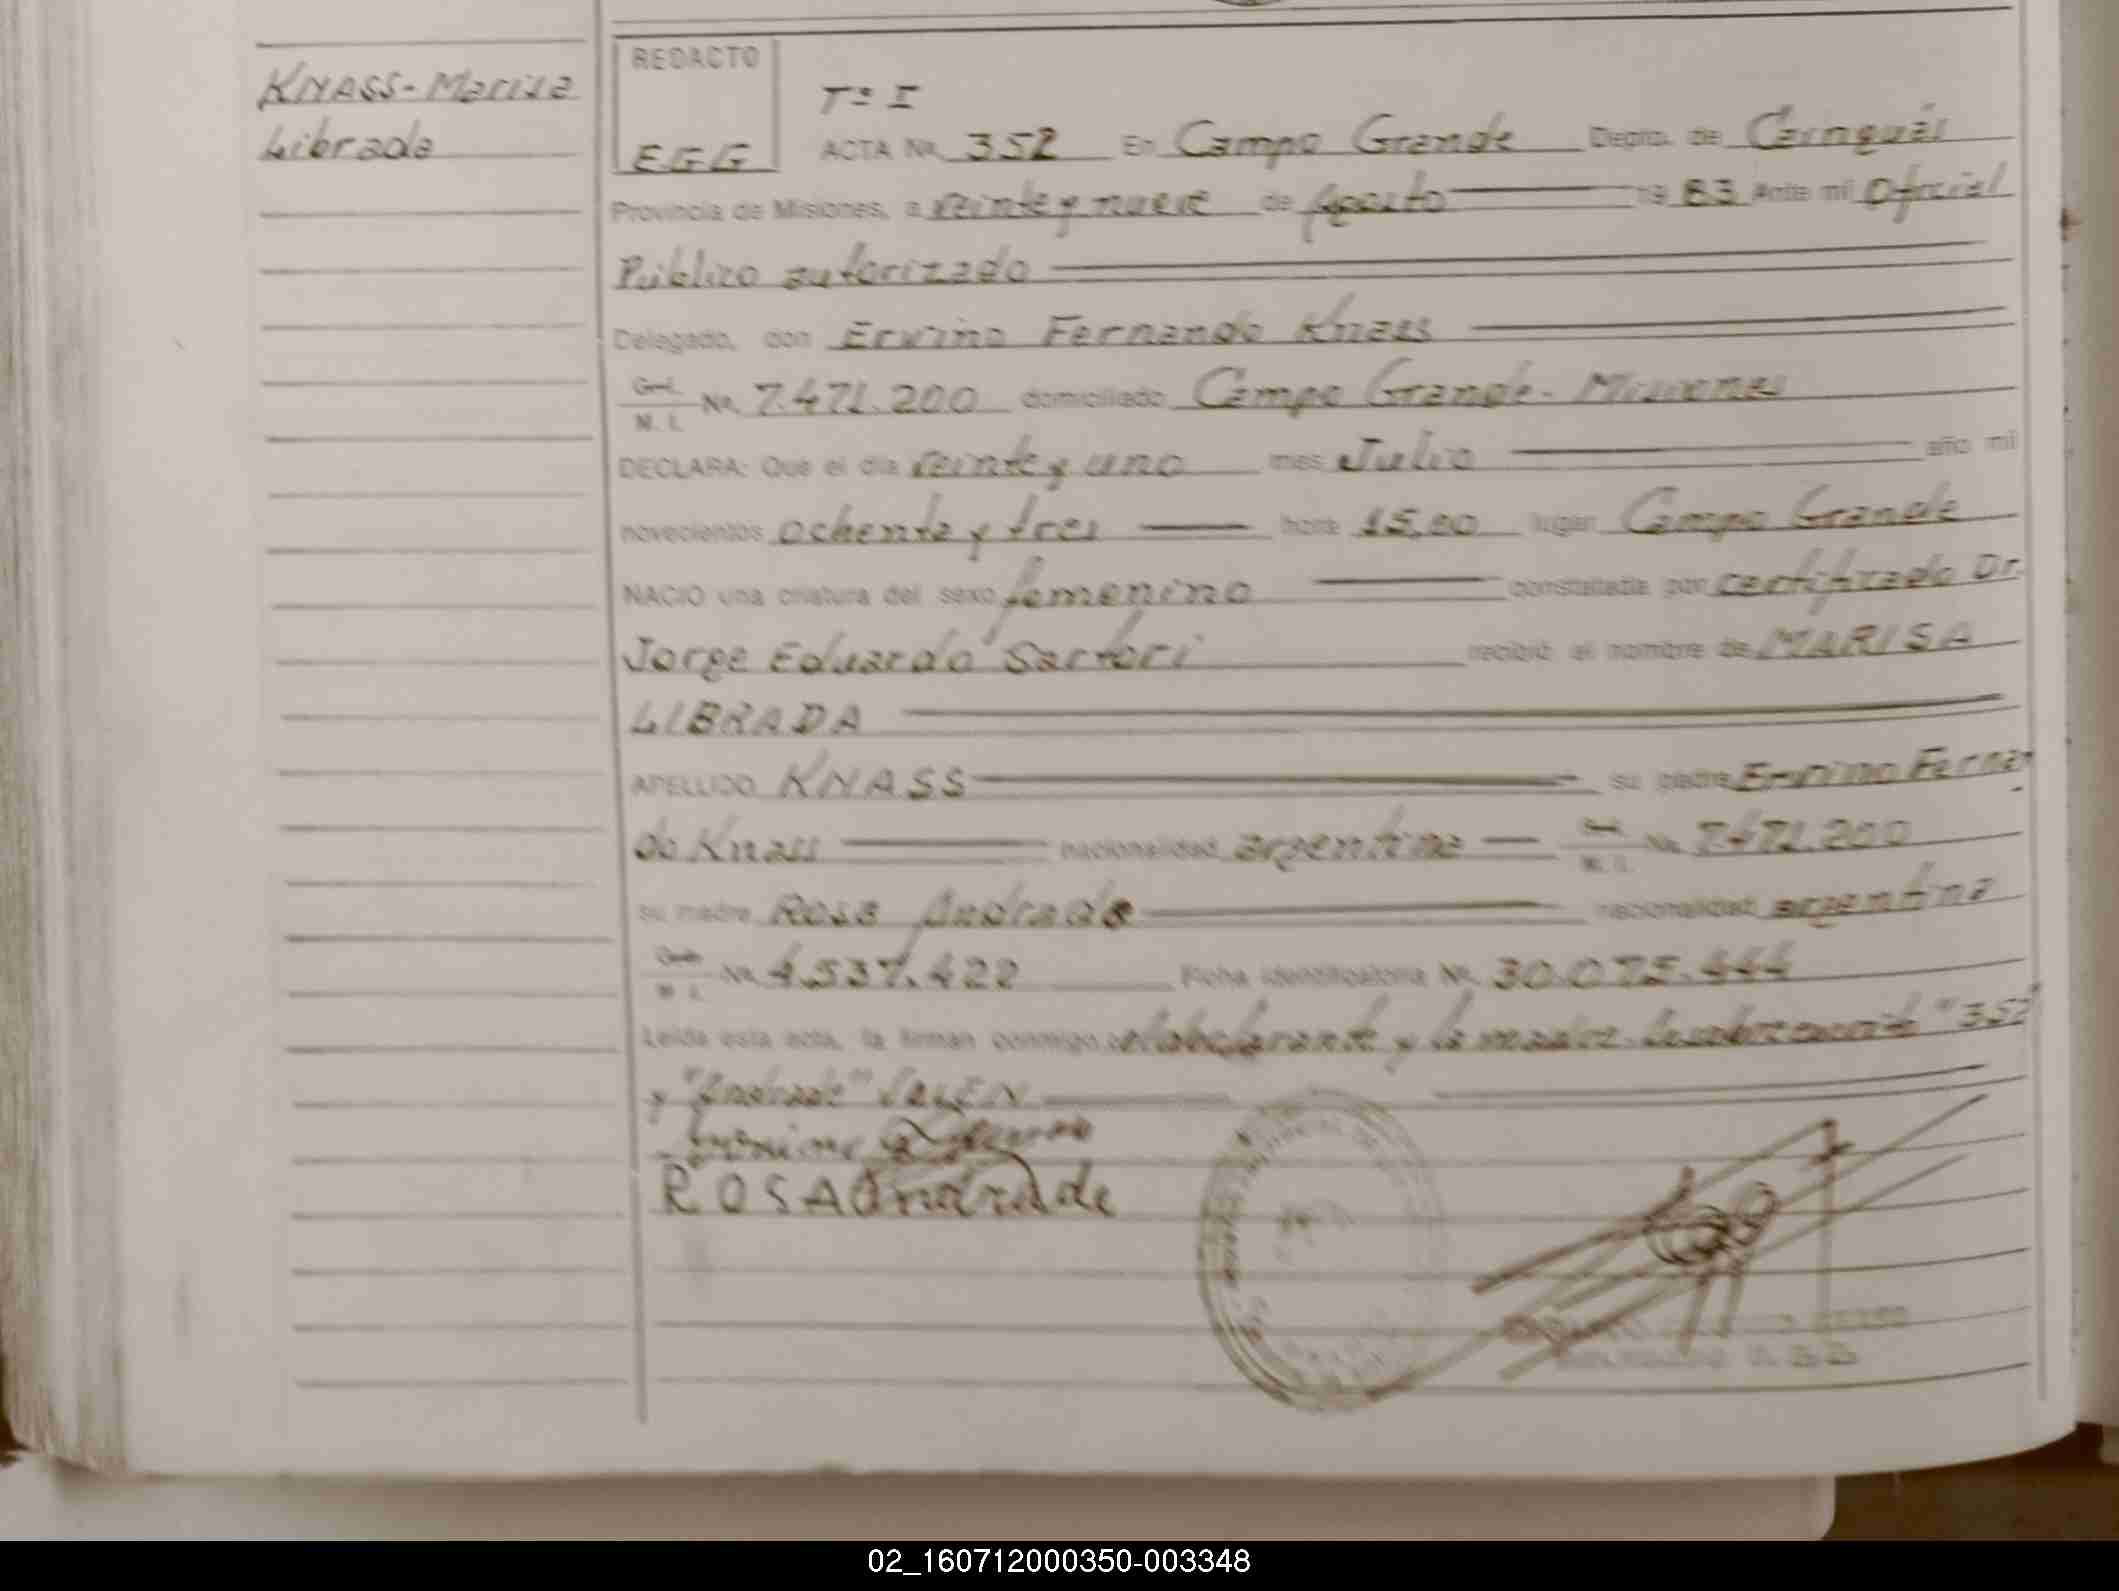 KNASS-Marisa
Librada
REDACTO
EGG
Tº I
ACTA Nº 352 En Campo Grande Depto. de Cainguás
Provincia de Misiones, a veinte y nueve de Agosto 19 83 Ante mi Oficial
Público autorizado
Delegado, don Ervino Fernando Knass
M. I. Nº 7.471.200 domiciliado Campo Grande - Misiones
DECLARA: Que el día veinte y uno mes Julio año mil
novecientos ochenta y tres hora 15,00 lugar Campo Grande
NACIO una criatura del sexo femenino constatada por certificado Dr.
Jorge Eduardo Sartori recibió el nombre de MARISA
LIBRADA
APELLIDO KNASS su padre Ervino Fernan-
do Knass nacionalidad argentina M. I. Nº 7.471.200
su madre Rosa Andrade nacionalidad argentina
M. I. Nº 4.537.422 Ficha identificatoria Nº 30.075.444
Leída esta acta, la firman conmigo el declarante y la madre. "352
y "Andrade" VALEN
ROSA Andrade
02_160712000350-003348